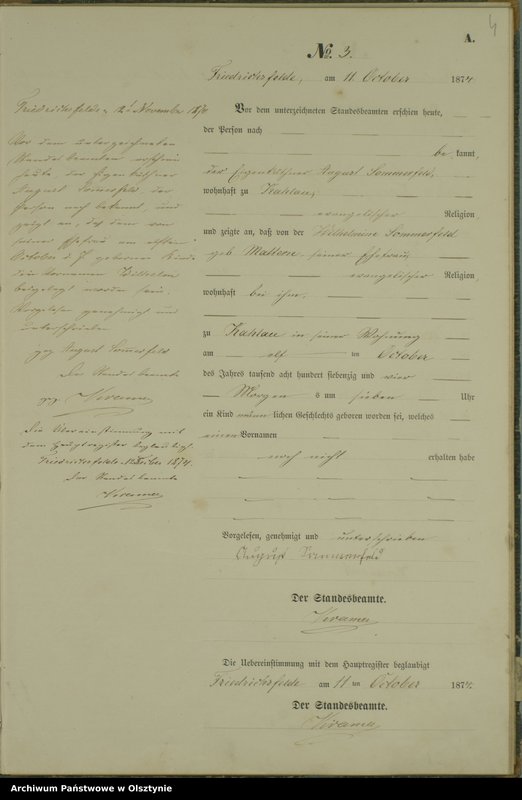 4
A.
No. 3.
Friedrichsfelde, am 11 October 1874
Vor dem unterzeichneten Standesbeamten erschien heute,
der Person nach
be kannt,
der Eigenkäthner August Sommerfeld,
wohnhaft zu Kahlau,
evangelischer Religion,
und zeigte an, daß von der Wilhelmine Sommerfeld
geb. Mattern, seiner Ehefrau,
evangelischer Religion,
wohnhaft bei ihm,
zu Kahlau in seiner Wohnung
am elf ten October
des Jahres tausend acht hundert siebenzig und vier
Morgens um sieben Uhr
ein Kind männlichen Geschlechts geboren worden sei, welches
einen Vornamen
noch nicht erhalten habe
Vorgelesen, genehmigt und unterschrieben
August Sommerfeld
Der Standesbeamte.
Kramer
Die Uebereinstimmung mit dem Hauptregister beglaubigt
Friedrichsfelde am 11 ten October 1874.
Der Standesbeamte.
Kramer
Friedrichsfelde, 12t November 1874
Vor dem unterzeichneten
Standesbeamten erschien
heute, der Eigenkäthner
August Sommerfeld, der
Person nach bekannt, und
zeigte an, daß dem von
seiner Ehefrau am elften
October d. J. geborenen Kinde
die Vornamen Wilhelm
beigelegt worden sein.
Vorgelesen genehmigt und
unterschrieben
gez August Sommerfeld
Der Standesbeamte
gez Kramer
Die Uebereinstimmung mit
dem Hauptregister beglaubigt.
Friedrichsfelde 1874.
Der Standesbeamte
Kramer
Archiwum Państwowe w Olsztynie